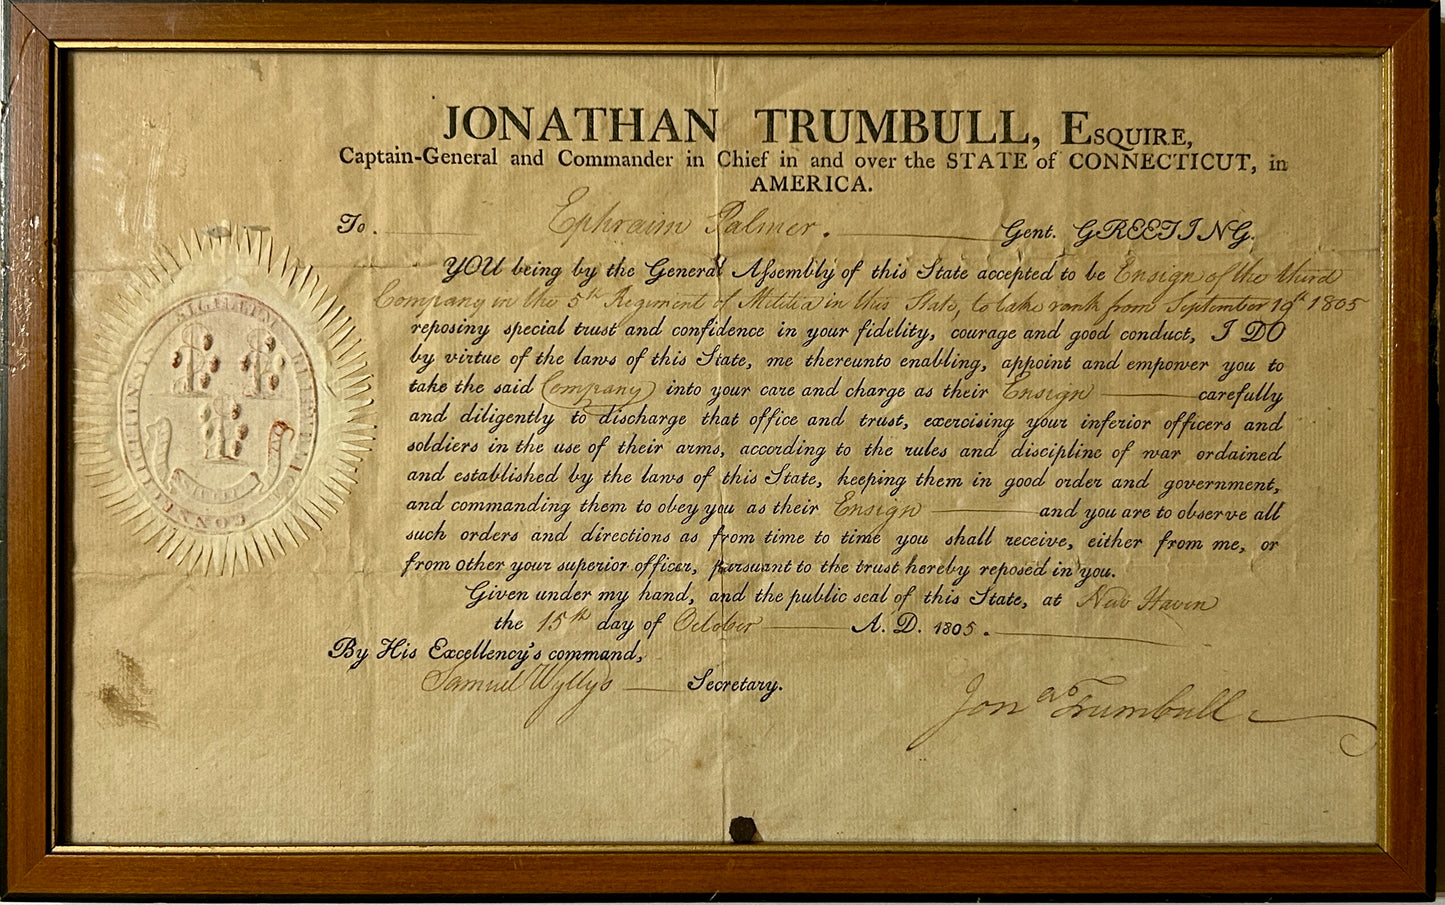 JONATHAN TRUMBULL, ESQUIRE,
Captain-General and Commander in Chief in and over the STATE of CONNECTICUT, in
AMERICA.
To. Ephraim Palmer. Gent. GREETING.
YOU being by the General Assembly of this State accepted to be Ensign of the third
Company in the 5th Regiment of Militia in this State, to take rank from September 19th 1805
reposiny special trust and confidence in your fidelity, courage and good conduct, I DO
by virtue of the laws of this State, me thereunto enabling, appoint and empower you to
take the said Company into your care and charge as their Ensign carefully
and diligently to discharge that office and trust, exercising your inferior officers and
soldiers in the use of their arms, according to the rules and discipline of war ordained
and established by the laws of this State, keeping them in good order and government,
and commanding them to obey you as their Ensign and you are to observe all
such orders and directions as from time to time you shall receive, either from me, or
from other your superior officer, pursuant to the trust hereby reposed in you.
Given under my hand, and the public seal of this State, at New Haven
the 15th day of October A. D. 1805.
By His Excellency's command,
Samuel Wyllys Secretary.
Jonaᵗʰ Trumbull
SIGILLUM REIPUBLICÆ CONNECTICUTENSIS